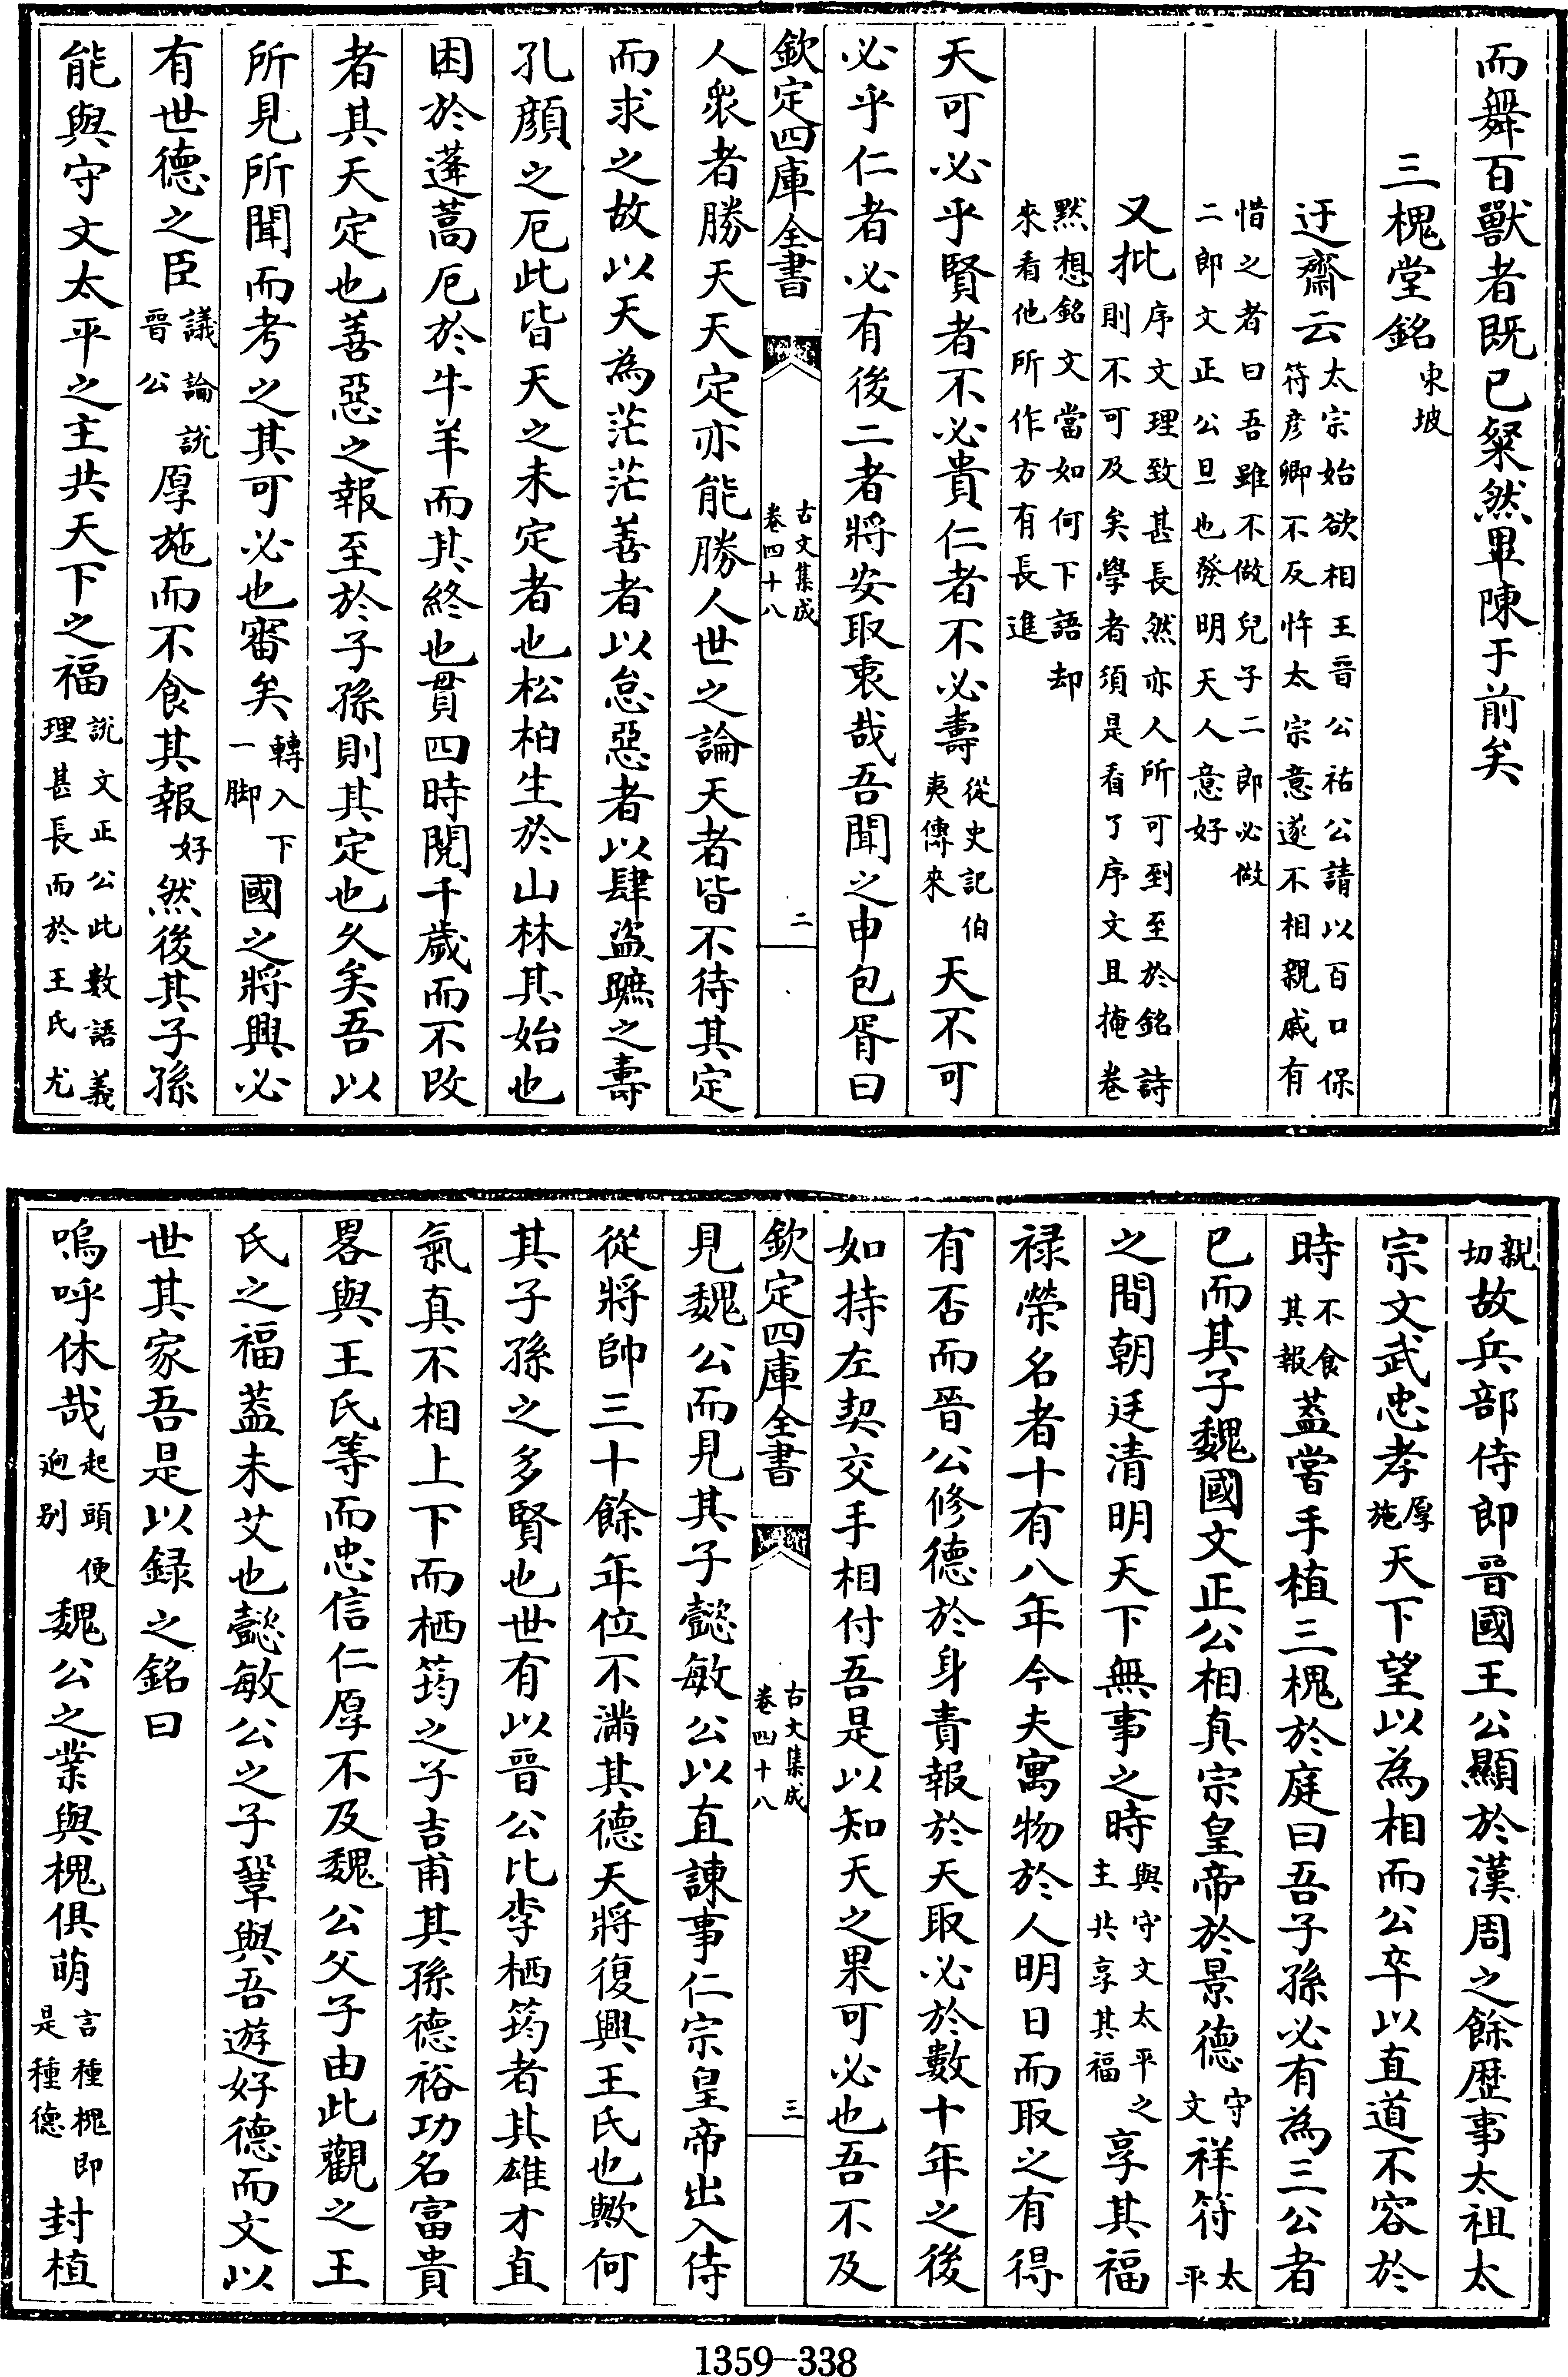 而舞百獸者既已粲然畢陳于前矣
三槐堂銘東坡
迂齋云太宗始欲相王晉公祐公請以百口保符彥卿不反忤太宗意遂不相親戚有
惜之者曰吾雖不做兒子二郎必做二郎文正公旦也發明天人意好
又批序文理致甚長然亦人所可到至於銘詩則不可及矣學者須是看了序文且掩卷
默想銘文當如何下語却來看他所作方有長進
天可必乎賢者不必貴仁者不必壽從史記伯夷傳來天不可
必乎仁者必有後二者將安取衷哉吾聞之申包胥曰
欽定四庫全書 古文集成卷四十八 二
人衆者勝天天定亦能勝人世之論天者皆不待其定
而求之故以天為茫茫善者以怠惡者以肆盜蹠之壽
孔顔之厄此皆天之未定者也松柏生於山林其始也
困於蓬蒿厄於牛羊而其終也貫四時閱千歲而不改
者其天定也善惡之報至於子孫則其定也久矣吾以
所見所聞而考之其可必也審矣轉入下一脚國之將興必
有世德之臣議論說晉公厚施而不食其報好然後其子孫
能與守文太平之主共天下之福說文正公此數語義理甚長而於王氏尤
親切故兵部侍郎晉國王公顯於漢周之餘歷事太祖太
宗文武忠孝厚施天下望以為相而公卒以直道不容於
時不食其報蓋嘗手植三槐於庭曰吾子孫必有為三公者
已而其子魏國文正公相真宗皇帝於景德守文祥符太平
之間朝廷清明天下無事之時與守文太平之主共享其福享其福
禄榮名者十有八年今夫寓物於人明日而取之有得
有否而晉公修德於身責報於天取必於數十年之後
如持左契交手相付吾是以知天之果可必也吾不及
欽定四庫全書 古文集成卷四十八 三
見魏公而見其子懿敏公以直諫事仁宗皇帝出入侍
從將帥三十餘年位不滿其德天將復興王氏也歟何
其子孫之多賢也世有以晉公比李栖筠者其雄才直
氣真不相上下而栖筠之子吉甫其孫德裕功名富貴
畧與王氏等而忠信仁厚不及魏公父子由此觀之王
氏之福蓋未艾也懿敏公之子鞏與吾遊好德而文以
世其家吾是以録之銘曰
嗚呼休哉起頭便逈别魏公之業與槐俱萌言種槐即是種德封植
1359-338